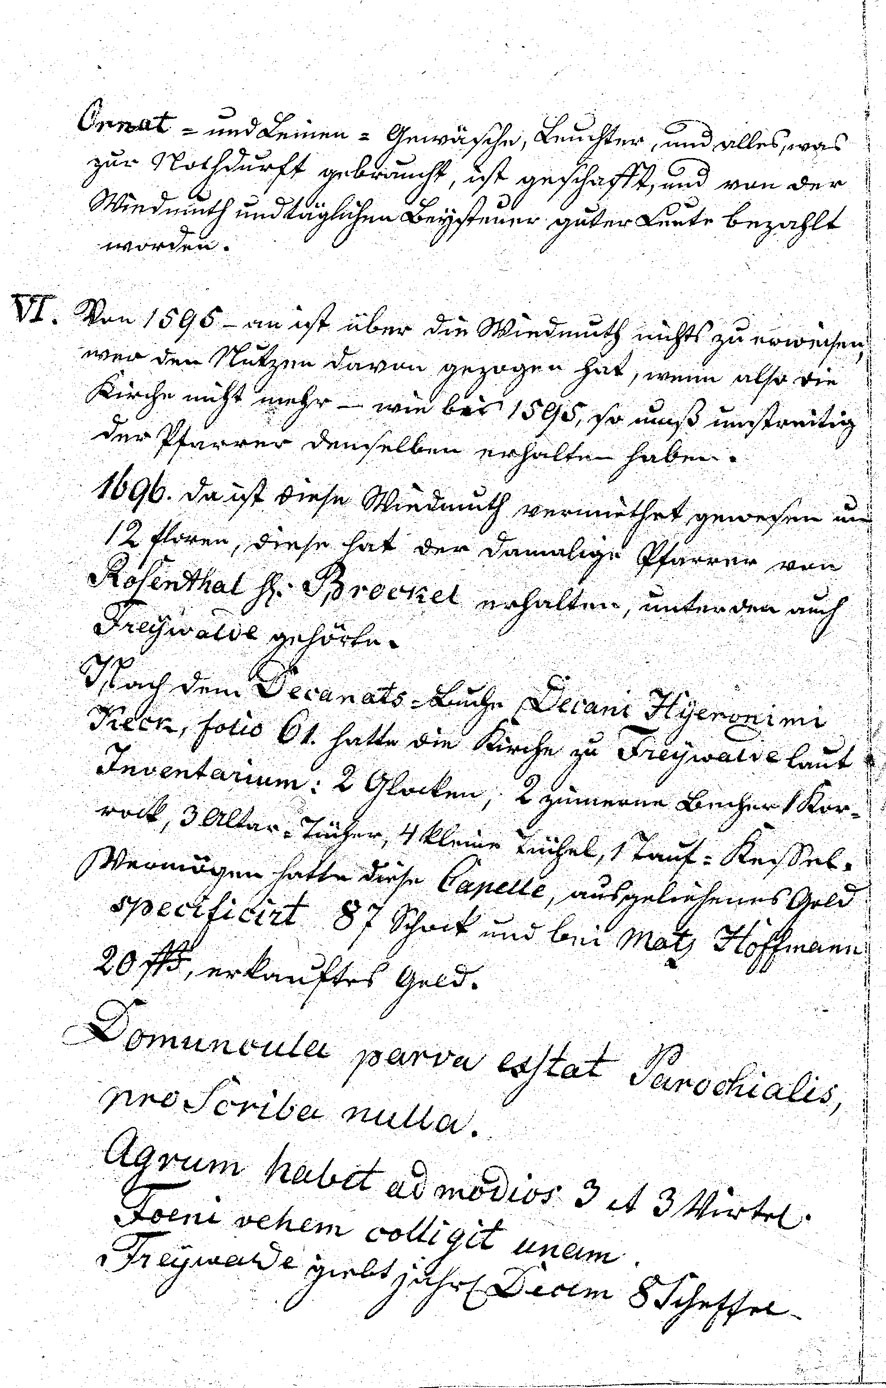 Ornat = und Leinen = Gewäsche, Leuchter, und alles, was
zur Nothdurft gebraucht, ist geschafft, und von der
Wiedmuth und täglichen Beÿsteuer guter Leute bezahlt
worden.
VI. Von 1595 – an ist über die Wiedmuth nichts zu erweisen,
wer den Nutzen davon gezogen hat, wenn also die
Kirche nicht mehr – wie bis 1595, so muß unstreitig
der Pfarrer denselben erhalten haben.
1696. da ist diese Wiedmuth vermiethet gewesen um
12 floren, diese hat der damalige Pfarrer von
Rosenthal H: Brockel erhalten, unter den auch
Freÿwalde gehörte.
Nach dem Decanats = Buche Decani Hÿeronimi
Keck, folio 61. hatte die Kirche zu Freÿwalde laut
Inventarium: 2 Glocken, 2 zinnerne Becher 1 Kor=
rock, 3 Altar = Tücher, 4 kleine Tüchel, 1 Tauf = Kessel.
Vermögen hatte diese Capelle, ausgeliehenes Geld
specificirt 87 Schock und bei Matz Hoffmann
20 , erkauftes Geld.
Domuncula parva exstat Parochialis,
pro Scriba nulla.
Agrum habet ad modios 3 et 3 Virtel.
Foeni vehem colligit unam.
Freÿwalde giebt jährl Decem 8 Scheffel